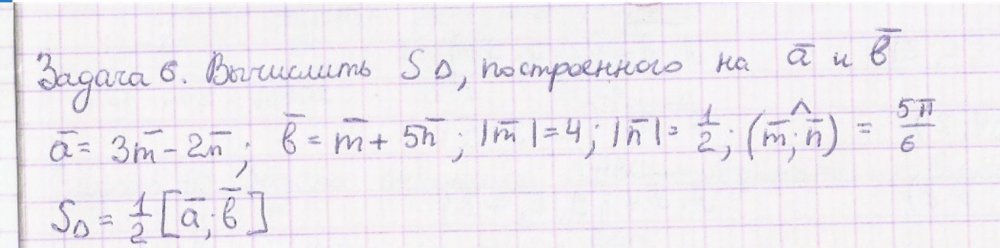 Задача 6. Вычислить S△, построенного на a̅ и b̅
a̅ = 3m̅ - 2n̅; b̅ = m̅ + 5n̅; |m̅| = 4; |n̅| = 1/2; (m̅;^n̅) = 5π/6
S△ = 1/2 [a̅; b̅]